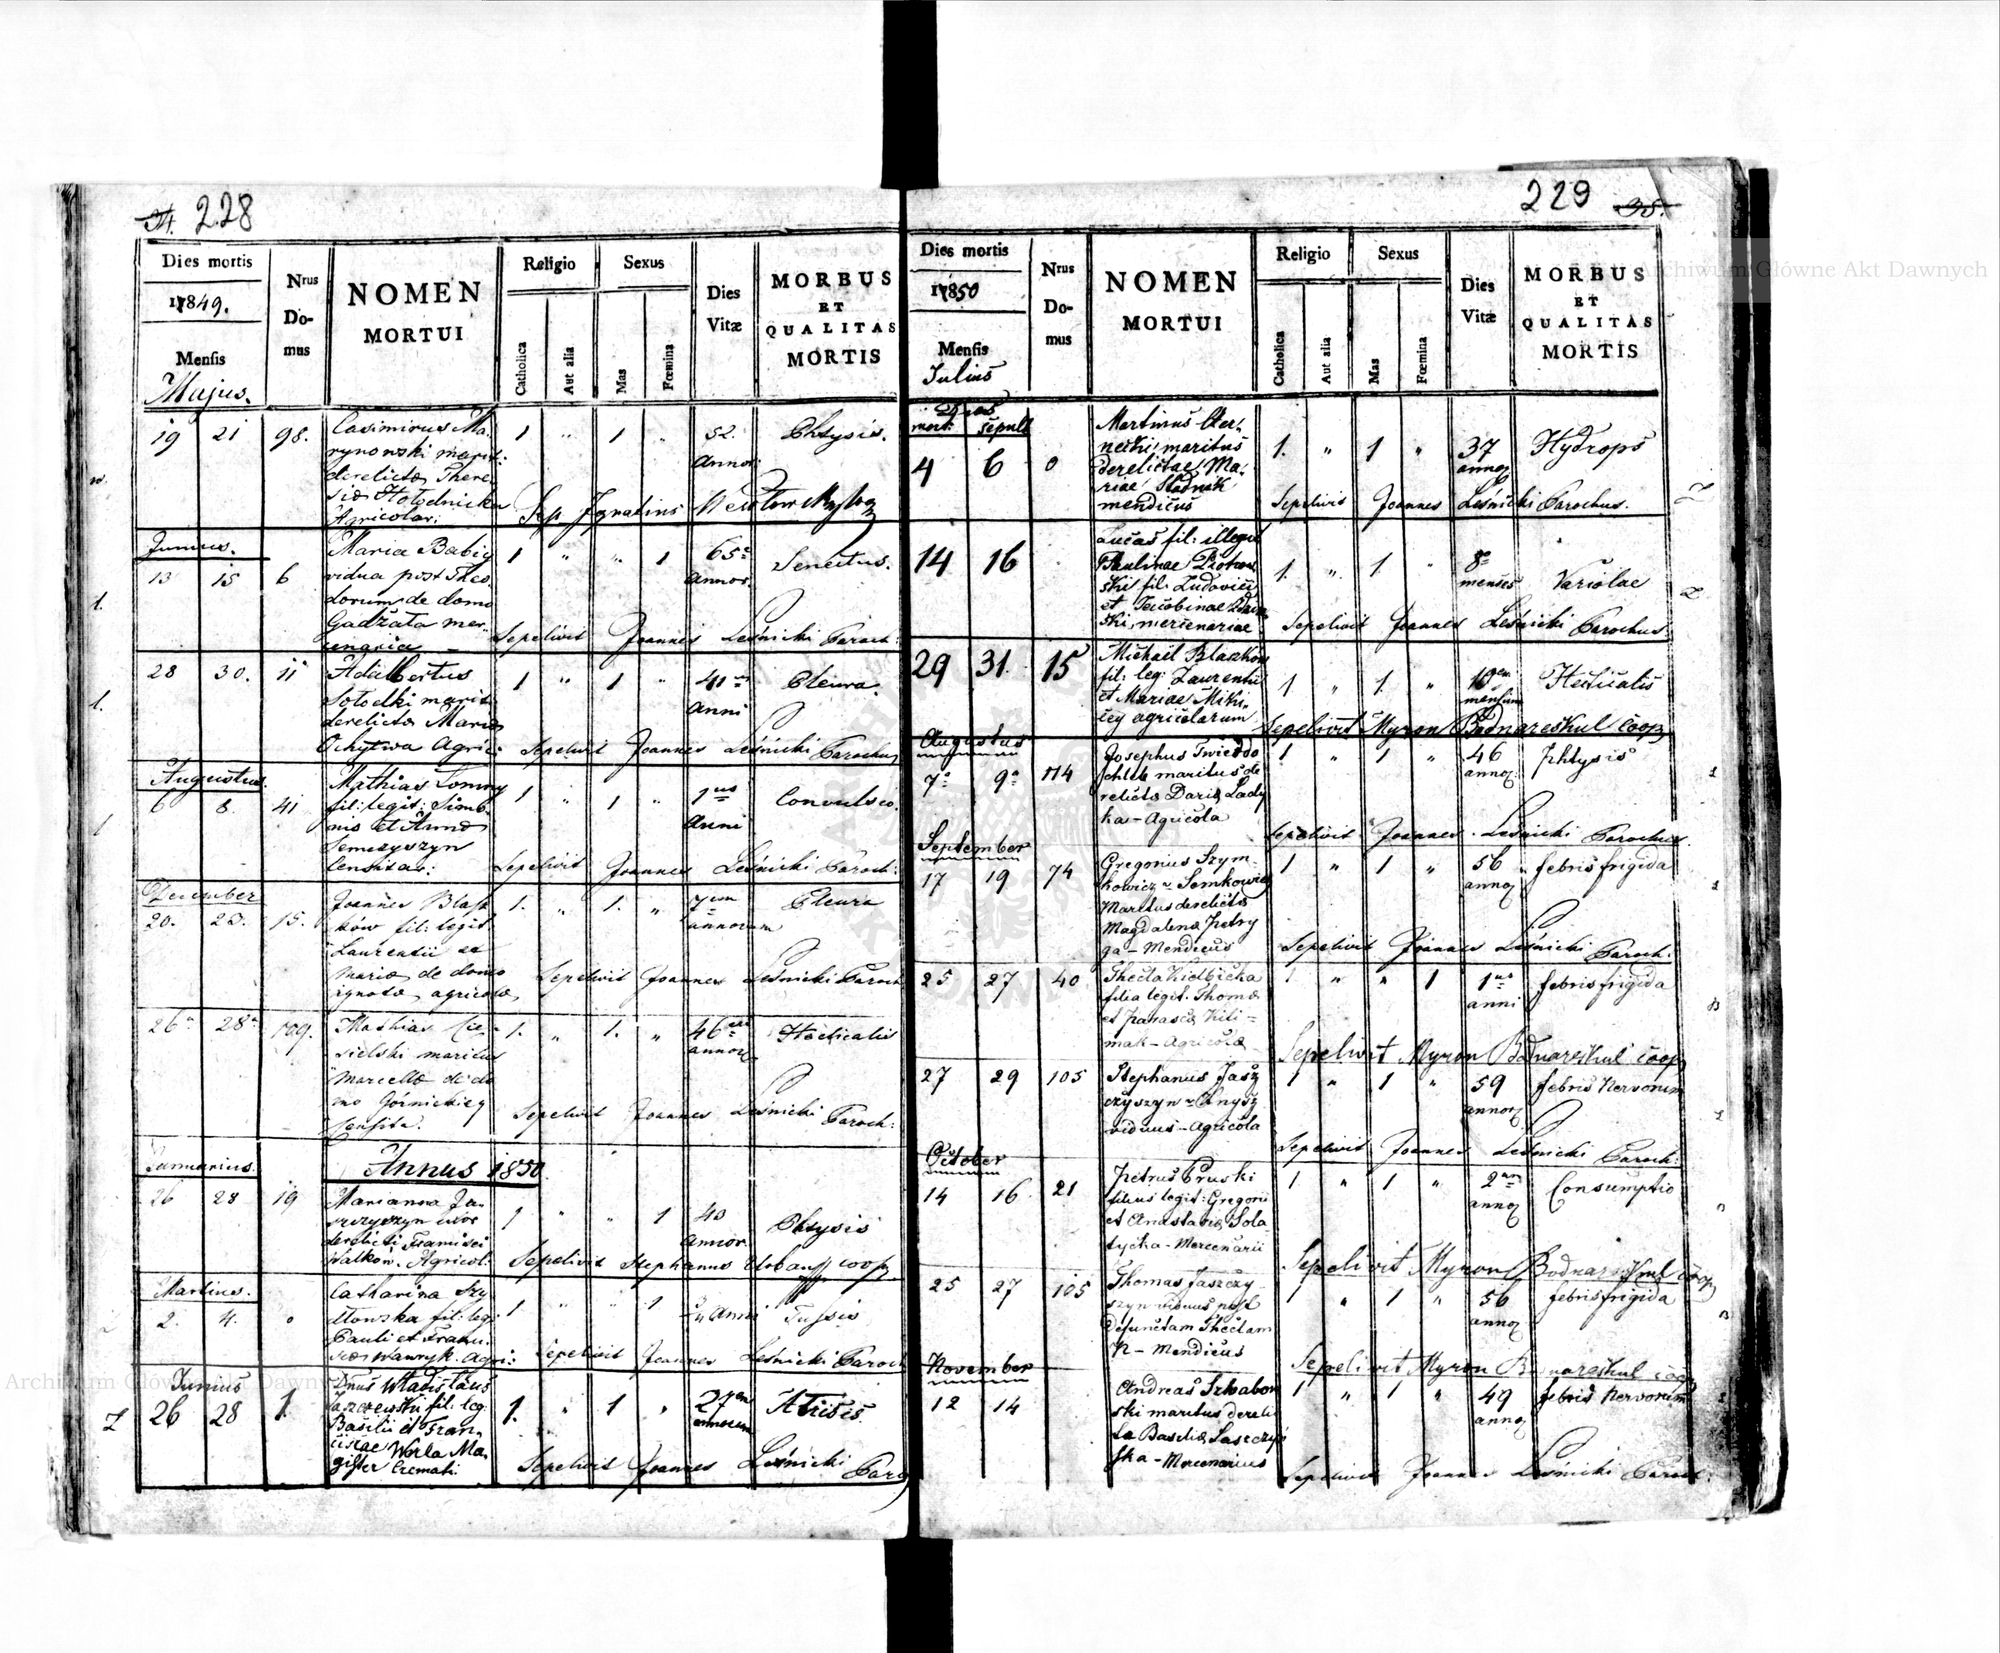 228
Dies mortis
1849.
Mensis
Majus.
Nrus
Do-
mus
NOMEN
MORTUI
Religio
Catholica
Aut alia
Sexus
Mas
Fœmina
Dies
Vitæ
MORBUS
ET
QUALITAS
MORTIS
19 21 98. Casimirus Ma-
rynowski marit:
derelicta There-
sia Hołodnicka
Agricolar:
1 " 1 " 52.
Annor: Phtysis.
Sep Ignatius
Junius.
13 15 6 Maria Babiy
vidua post Theo-
dorum de domo
Gadzała mer-
cenaria
1 " " 1 65
Annor. Senectus.
Sepelivit Joannes Leśnicki Paroch:
28 30. 11 Adalbertus
marit:
derelicta Maria
Ochytwa Agric:
1 " 1 " 41
Anni Pleura.
Sepelivit Joannes Leśnicki Parochus
Augustus.
6 8. 41 Mathias Łomny
fil: legit: Simo-
nis et Anna
Semczyszyn
1 " 1 " 1
Anni Convulsio.
Sepelivit Joannes Leśnicki Paroch:
December
20. 23. 15. Joannes Błasz-
ków fil: legit:
Laurentii et
Maria de domo
ignota agricola
1. " 1. " 7
annorum Pleura
Sepelivit Joannes Leśnicki Paroch
26 28 109. Mathias Cie-
sielski maritus
Marcella de do-
mo
1. " 1. " 46
Hecticalis
Sepelivit Joannes Leśnicki Paroch:
Annus 1850
Januarius.
26 28 19 Marianna Ja-
szczyszyn uxor
derelicti Francisci
Walkow. Agricol:
1 " " 1 40
Annor Phtysis
Sepelivit Stephanus coop
Martius.
2. 4. 0 Catharina Szy-
dłowska fil: leg:
Pauli et Franci-
sca Wawryk. Agri:
1 " " 1 Anni Tussis
Sepelivit Joannes Leśnicki Paroch
Junius
26 28 1. Dnus Wladislaus
fil: leg:
Basilii et Fran-
ciscae Worla Ma-
gister Cremati
1. " 1 " 27
annorum
Sepelivit Joannes Leśnicki Paro
229
Dies mortis
1850
Mensis
Julius
Nrus
Do-
mus
NOMEN
MORTUI
Religio
Catholica
Aut alia
Sexus
Mas
Fœmina
Dies
Vitæ
MORBUS
ET
QUALITAS
MORTIS
mort: sepult
4 6 0 Martinus Czer-
necki maritus
derelictae Ma-
riae Stadnik
mendicus
1. " 1 " 37
Hydrops
Sepelivit Joannes Leśnicki Parochus.
14 16 Lucas fil: illegit
Paulinae Piotrow-
ski fil: Ludovici
et Jacobinae
ski mercenariae
1. " 1. " 8
menses Variolae
Sepelivit Joannes Leśnicki Parochus:
29 31. 15 Michael Blaszków
fil: leg: Laurentii
et Mariae Miki-
ciey agricolarum
1 " 1. " Hecticalis
Sepelivit Myron Bodnareskul coop
Augustus
7 9 114 Josephus Twierdo-
chleb maritus de
relicta Daria Lady
ka - Agricola
1 " 1 " 46
Phtysis
Sepelivit Joannes Leśnicki Parochus.
September
17 19 74 Gregorius Szym-
kowicz Semkowicz
Maritus derelicta
Magdalena Petry
ga - Mendicus
1 " 1 " 56
febris frigida
Sepelivit Joannes Leśnicki Paroch:
25 27 40 Thecla Kielbicka
filia legit. Thoma
et Parasca Kili-
mak - Agricola
1 " " 1 1
anni febris frigida
Sepelivit Myron Bodnareskul coop
27 29 105 Stephanus Jasz-
czyszyn
viduus - Agricola
1 " 1 " 59
febris Nervorum
Sepelivit Joannes Leśnicki Paroch:
October
14 16 21 Petrus Pruski
filius legit: Gregorii
et Anastasia Sola
tycka - Mercenarii
1 " 1 " 2
Consumptio
Sepelivit Myron Bodnareskul coop
25 27 105 Thomas Jaszczy-
szyn viduus post
defunctam Theclam
N - Mendicus
1 " 1 " 56
febris frigida
Sepelivit Myron Bodnareskul coop
November
12 14 Andreas Szwabow
ski maritus dereli
ta Basilia Jaszczy
ska - Mercenarius
1 " 1 " 49
febris Nervorum
Sepelivit Joannes Leśnicki Paroch:
Archiwum Główne Akt Dawnych
Archiwum Główne Akt Dawnych